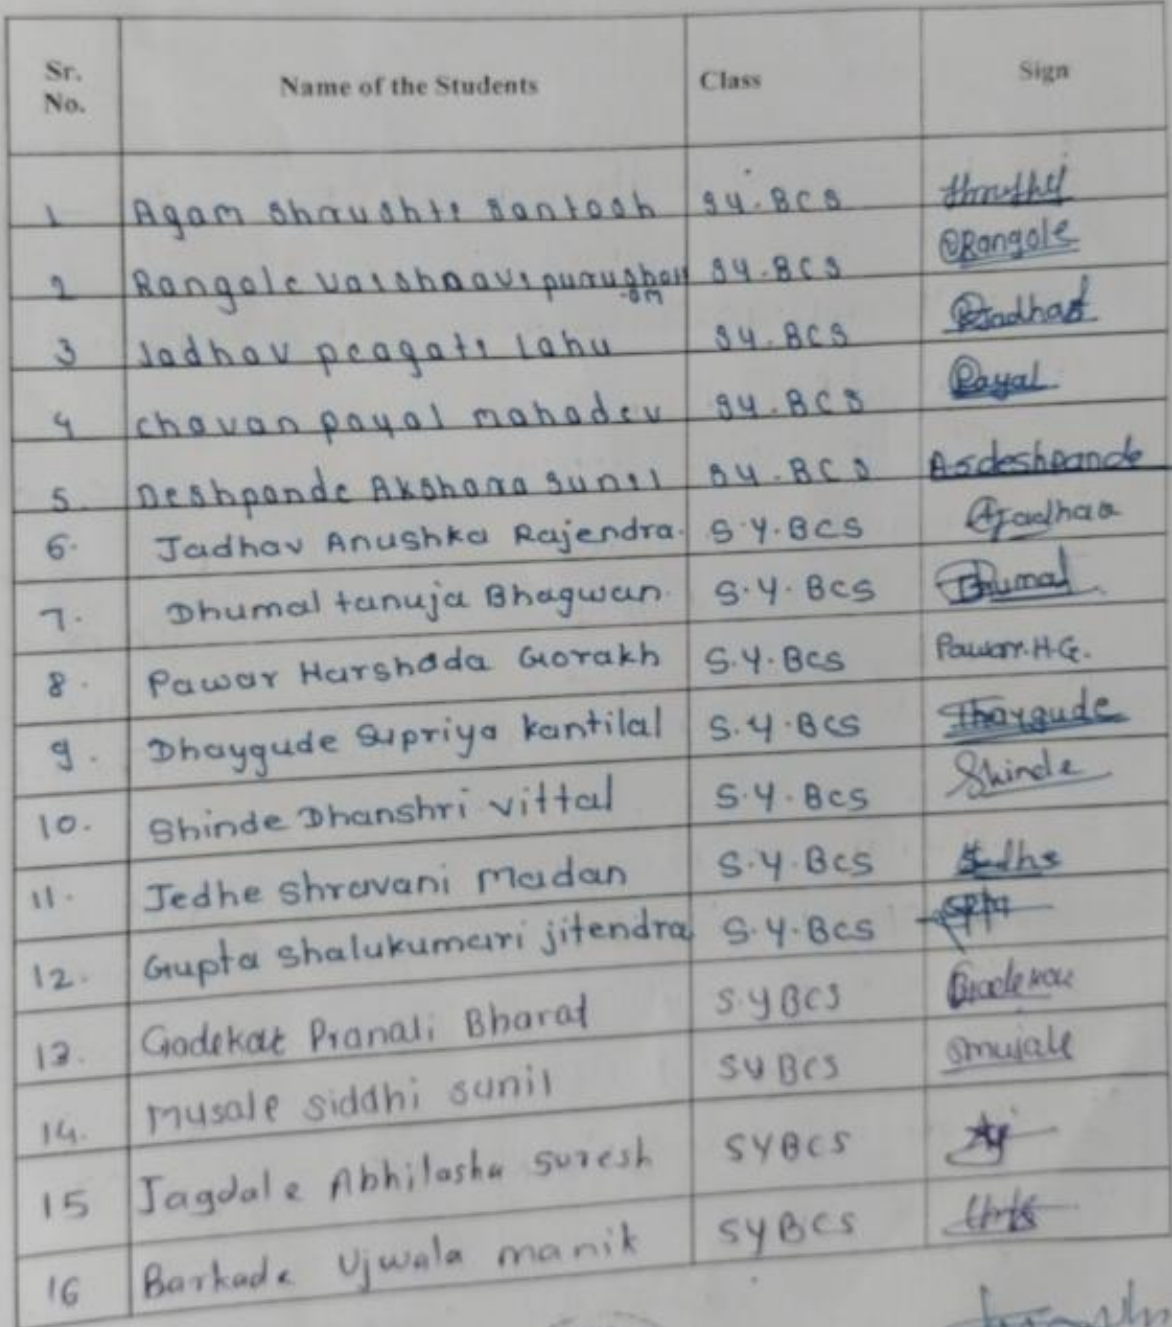 Sr. No. Name of the Students Class Sign
1 Agam Shrushti Santosh SY.BCS
2 Rangole Vaishnavi purushott SY.BCS Rangole
-am
3 Jadhav pragati Lahu SY.BCS Jadhav
4 chavan payal mahadev SY.BCS Payal
5. Deshpande Akshara Sunil SY.BCS A.s.deshpande
6. Jadhav Anushka Rajendra. S.Y.BCS AJadhav
7. Dhumal tanuja Bhagwan. S.Y.BCS Dhumal
8. Pawar Harshada Gorakh S.Y.BCS Pawar.H.G.
9. Dhaygude Supriya kantilal S.Y.BCS Dhaygude
10. Shinde Dhanshri vittal S.Y.BCS Shinde
11. Jedhe Shravani Madan S.Y.BCS
12. Gupta Shalukumari jitendra S.Y.BCS
13. Gadekar Pranali Bharat S.YBCS Gadekar
14. Musale siddhi sunil SYBCS
15 Jagdale Abhilasha suresh SYBCS
16 Barkade Ujwala manik SYBCS